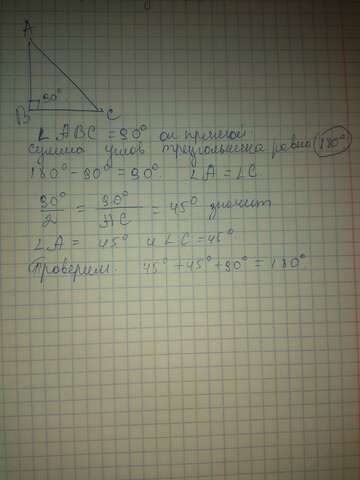 A
B 90° C
∠ABC = 90° он прямой
сумма углов треугольника равно (180°)
180° - 90° = 90°. ∠A = ∠C
90°/2 = 90°/AC = 45° значит
∠A = 45° и ∠C = 45°
Проверим. 45° + 45° + 90° = 180°